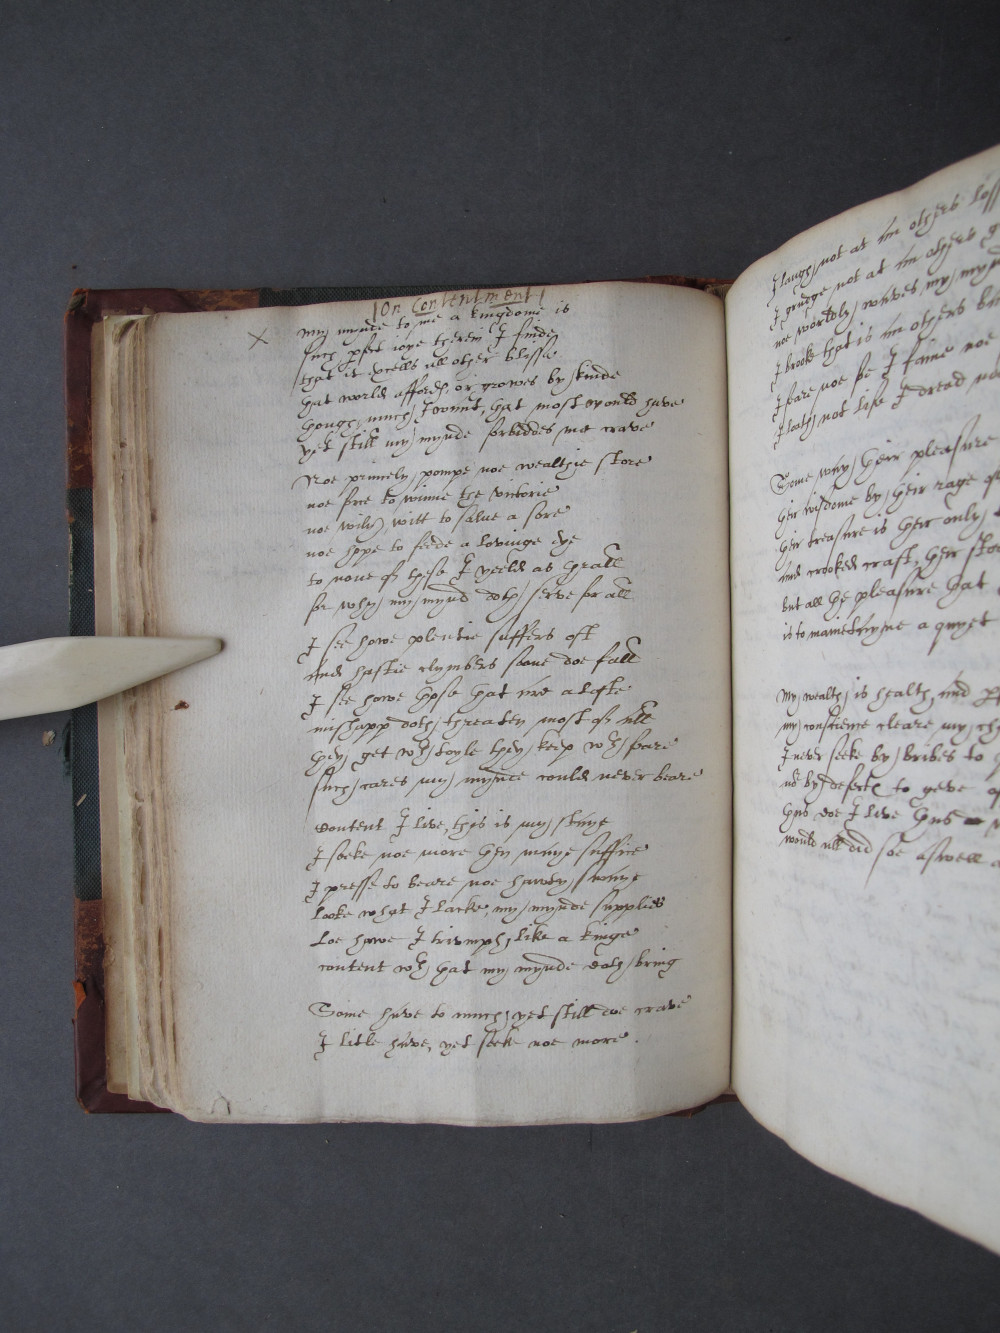 On Contentment
My mynde to me a kingdome is
such p̱fect ioye therein I finde
that it excells all other blisse
that world affords, or growes by kinde
though much I wannt, that most would have
yet still my mynde forbiddes me crave
Noe princely pompe noe wealthie store
noe force to winne the victorie
noe wily witt to salue a sore
noe shape to feede a lovinge eye
to none of these I yeeld as thrall
for why my mynd doth serve for all
I see howe plentie suffers oft
And hastie clymbers soone doe fall
I see howe those that are alofte
mishapp doth threaten most of all
they get wth toyle they keep wth feare
such cares my mynde could never beare
Content I live, this is my staye
I seeke noe more then maye suffice
I presse to beare noe hawty swaye
looke what I lacke, my mynde supplies
Loe thus I triumph, like a kinge
content wth that my mynde doth bring
Some have to much, yet still doe crave
I litle have, yet seeke noe more.
I laugh not at an others loss
I grudge not at an others
noe worldly waves my mynd
I brooke that is an others
I feare noe foe I fawne noe
I loath not life I dread no
Some weigh their pleasure
their wisdome by their rage of
their treasure is their only
And crooked craft, their stor
but all the pleasure that
is to maintayne a quyet
My wealth is health, and p
my conscience cleare my ch
I never seeke by bribes to
nor by to geve
thus doe I live thus
would all did soe aswell a